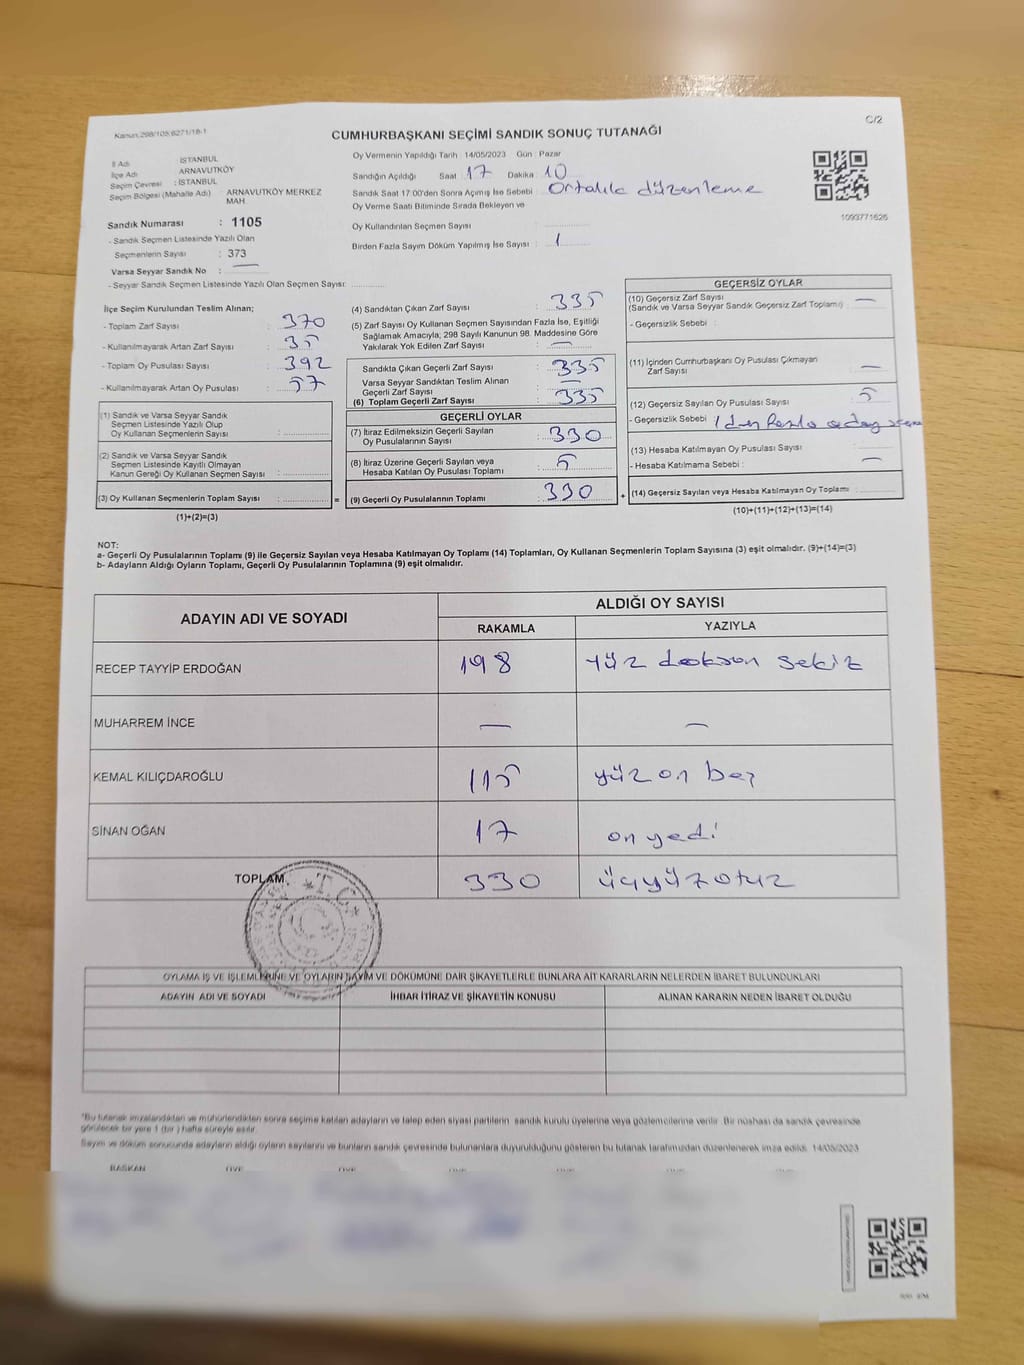 Kanun.298/105;6271/18-1
C/2
CUMHURBAŞKANI SEÇİMİ SANDIK SONUÇ TUTANAĞI
İl Adı : İSTANBUL
İlçe Adı : ARNAVUTKÖY
Seçim Çevresi : İSTANBUL
Seçim Bölgesi (Mahalle Adı) : ARNAVUTKÖY MERKEZ MAH.
Sandık Numarası : 1105
- Sandık Seçmen Listesinde Yazılı Olan
Seçmenlerin Sayısı : 373
Varsa Seyyar Sandık No : —
- Seyyar Sandık Seçmen Listesinde Yazılı Olan Seçmen Sayısı:
Oy Vermenin Yapıldığı Tarih 14/05/2023 Gün Pazar
Sandığın Açıldığı Saat 17 Dakika 10
Sandık Saat 17:00'den Sonra Açımış İse Sebebi : Ortalık düzenleme
Oy Verme Saati Bitiminde Sırada Bekleyen ve
Oy Kullandırılan Seçmen Sayısı :
Birden Fazla Sayım Döküm Yapılmış İse Sayısı : 1
1093771626
İlçe Seçim Kurulundan Teslim Alınan;
- Toplam Zarf Sayısı : 370
- Kullanılmayarak Artan Zarf Sayısı : 35
- Toplam Oy Pusulası Sayısı : 392
- Kullanılmayarak Artan Oy Pusulası : 57
(1) Sandık ve Varsa Seyyar Sandık
Seçmen Listesinde Yazılı Olup
Oy Kullanan Seçmenlerin Sayısı :
(2) Sandık ve Varsa Seyyar Sandık
Seçmen Listesinde Kayıtlı Olmayan
Kanun Gereği Oy Kullanan Seçmen Sayısı :
(3) Oy Kullanan Seçmenlerin Toplam Sayısı : =
(1)+(2)=(3)
(4) Sandıktan Çıkan Zarf Sayısı : 335
(5) Zarf Sayısı Oy Kullanan Seçmen Sayısından Fazla İse, Eşitliği
Sağlamak Amacıyla, 298 Sayılı Kanunun 98. Maddesine Göre
Yakılarak Yok Edilen Zarf Sayısı : —
Sandıkta Çıkan Geçerli Zarf Sayısı : 335
Varsa Seyyar Sandıktan Teslim Alınan
Geçerli Zarf Sayısı : —
(6) Toplam Geçerli Zarf Sayısı : 335
GEÇERLİ OYLAR
(7) İtiraz Edilmeksizin Geçerli Sayılan
Oy Pusulalarının Sayısı : 330
(8) İtiraz Üzerine Geçerli Sayılan veya
Hesaba Katılan Oy Pusulası Toplamı : 5
(9) Geçerli Oy Pusulalarının Toplamı : 330 +
GEÇERSİZ OYLAR
(10) Geçersiz Zarf Sayısı
(Sandık ve Varsa Seyyar Sandık Geçersiz Zarf Toplamı) : —
- Geçersizlik Sebebi :
(11) İçinden Cumhurbaşkanı Oy Pusulası Çıkmayan
Zarf Sayısı : —
(12) Geçersiz Sayılan Oy Pusulası Sayısı : 5
- Geçersizlik Sebebi : 1 den fazla aday
(13) Hesaba Katılmayan Oy Pusulası Sayısı :
- Hesaba Katılmama Sebebi : —
(14) Geçersiz Sayılan veya Hesaba Katılmayan Oy Toplamı :
(10)+(11)+(12)+(13)=(14)
NOT:
a- Geçerli Oy Pusulalarının Toplamı (9) ile Geçersiz Sayılan veya Hesaba Katılmayan Oy Toplamı (14) Toplamları, Oy Kullanan Seçmenlerin Toplam Sayısına (3) eşit olmalıdır. (9)+(14)=(3)
b- Adayların Aldığı Oyların Toplamı, Geçerli Oy Pusulalarının Toplamına (9) eşit olmalıdır.
ADAYIN ADI VE SOYADI ALDIĞI OY SAYISI
RAKAMLA YAZIYLA
RECEP TAYYİP ERDOĞAN 198 yüz doksan sekiz
MUHARREM İNCE — —
KEMAL KILIÇDAROĞLU 115 yüz on beş
SİNAN OĞAN 17 on yedi
TOPLAM 330 üçyüzotuz
T.C.
OYLAMA İŞ VE İŞLEMLERİNE VE OYLARIN SAYIM VE DÖKÜMÜNE DAİR ŞİKAYETLERLE BUNLARA AİT KARARLARIN NELERDEN İBARET BULUNDUKLARI
ADAYIN ADI VE SOYADI İHBAR İTİRAZ VE ŞİKAYETİN KONUSU ALINAN KARARIN NEDEN İBARET OLDUĞU
*Bu tutanak imzalandıktan ve mühürlendikten sonra seçime katılan adayların ve talep eden siyasi partilerin sandık kurulu üyelerine veya gözlemcilerine verilir. Bir nüshası da sandık çevresinde
görülecek bir yere 1 (bir) hafta süreyle asılır.
Sayım ve döküm sonucunda adayların aldığı oyların sayılarını ve bunların sandık çevresinde bulunanlara duyurulduğunu gösteren bu tutanak tarafımızdan düzenlenerek imza edildi. 14/05/2023
BAŞKAN ÜYE ÜYE